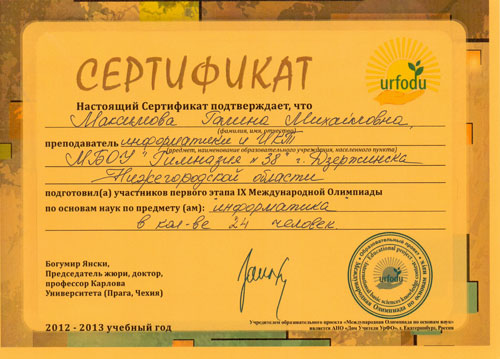 urfodu
СЕРТИФИКАТ
Настоящий Сертификат подтверждает, что
Максимова Галина Михайловна,
(фамилия, имя, отчество)
преподаватель информатики и ИКТ
(предмет, наименование образовательного учреждения, населенного пункта)
МБОУ "Гимназия № 38" г. Дзержинска
Нижегородской области
подготовил(а) участников первого этапа IX Международной Олимпиады
по основам наук по предмету (ам): информатика
в кол-ве 24 человек.
Богумир Янски,
Председатель жюри, доктор,
профессор Карлова
Университета (Прага, Чехия)
urfodu
2012 - 2013 учебный год
Учредителем образовательного проекта «Международная Олимпиада по основам наук»
является АНО «Дом Учителя УрФО», г. Екатеринбург, Россия